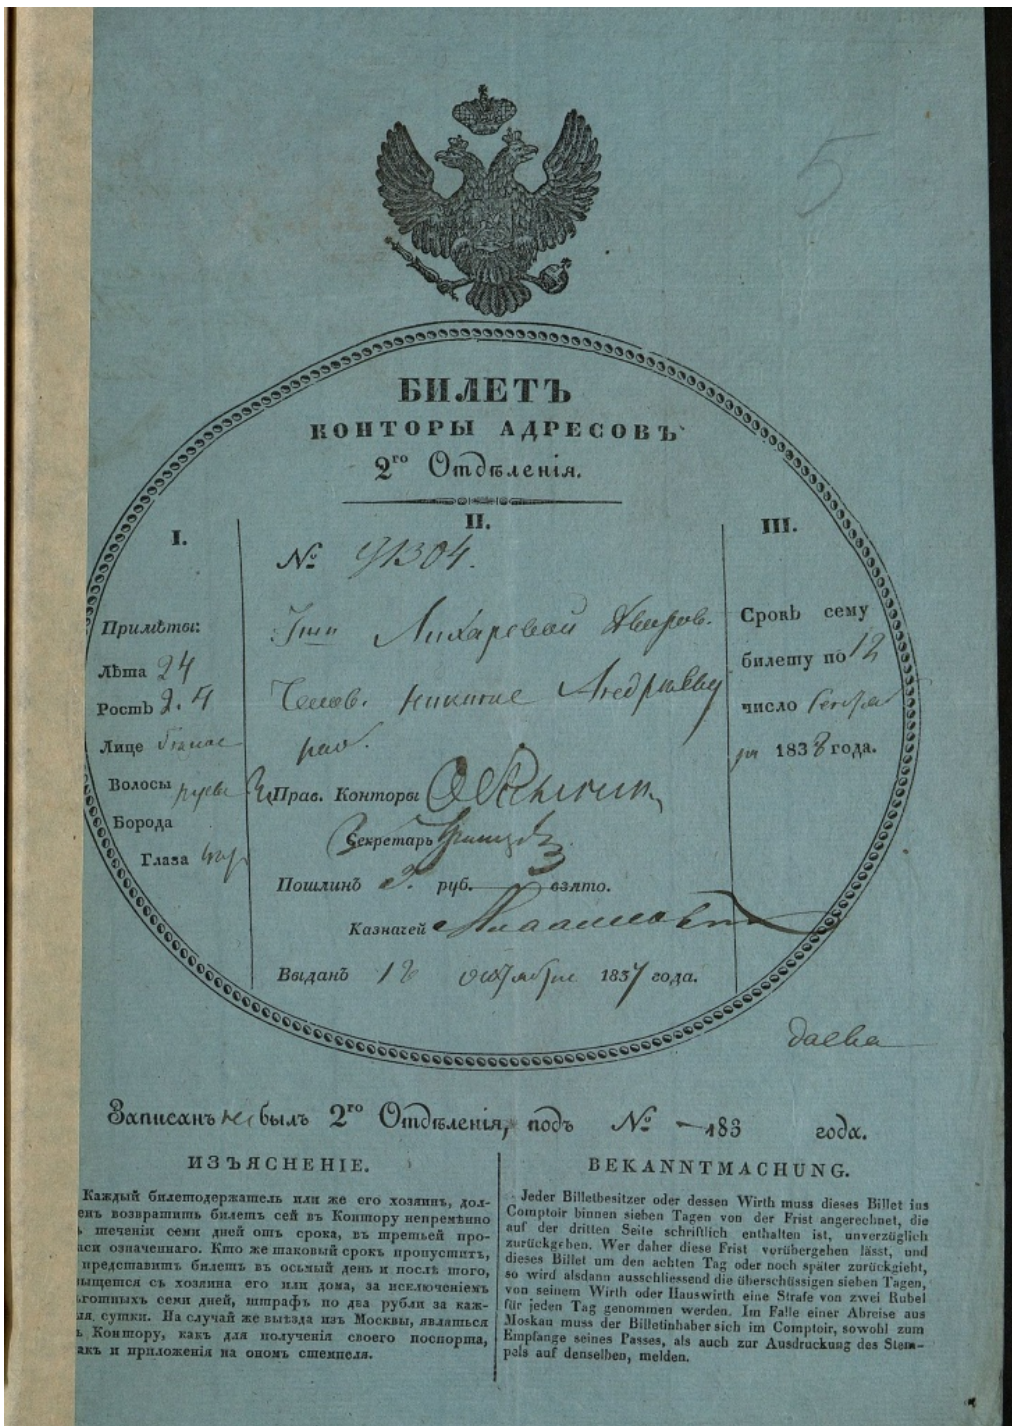 5
БИЛЕТЪ
КОНТОРЫ АДРЕСОВЪ
2го Отдѣленія.
I.
Примѣты:
Лѣта 24
Ростъ 2. 4
Лице
Волосы русы
Борода
Глаза
II.
№ 91304.
Лихаревой Дворов.
Челов. Никите Андрѣеву
раб.
Прав. Конторы
Секретарь
Пошлинъ 3. руб. взято.
Казначей
Выданъ 12 октября 1837 года.
III.
Срокъ сему
билету по 12
число
1838 года.
Записанъ былъ 2го Отдѣленія, подъ № 183 года.
ИЗЪЯСНЕНІЕ.
Каждый билетодержатель или же его хозяинъ, дол-
енъ возвратить билетъ сей въ Контору непремѣнно
ъ теченіи семи дней отъ срока, въ третьей про-
аси означеннаго. Кто же таковый срокъ пропуститъ,
представитъ билетъ въ осьмый день и послѣ того,
ыщется съ хозяина его или дома, за исключеніемъ
ьготныхъ семи дней, штрафъ по два рубли за каж-
ыя сутки. На случай же выѣзда изъ Москвы, являться
ъ Контору, какъ для полученія своего поспорта,
акъ и приложенія на ономъ стемпеля.
BEKANNTMACHUNG.
Jeder Billetbesitzer oder dessen Wirth muss dieses Billet ins
Comptoir binnen sieben Tagen von der Frist angerechnet, die
auf der dritten Seite schriftlich enthalten ist, unverzüglich
zurückgeben. Wer daher diese Frist vorübergehen lässt, und
dieses Billet um den achten Tag oder noch später zurückgiebt,
so wird alsdann ausschliessend die überschüssigen sieben Tagen,
von seinem Wirth oder Hauswirth eine Strafe von zwei Rubel
für jeden Tag genommen werden. Im Falle einer Abreise aus
Moskau muss der Billetinhaber sich im Comptoir, sowohl zum
Empfange seines Passes, als auch zur Ausdruckung des Stem-
pels auf denselben, melden.